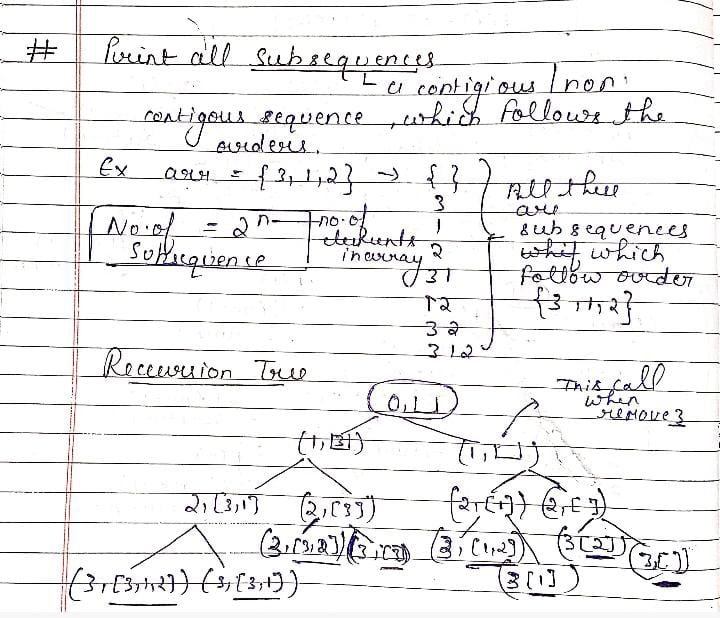 # Print all subsequences
↳ a contigious / non
contigous sequence, which follows the
orders.
Ex arr = {3,1,2} → { }
3
1
2
31
12
32
312
All these
are
subsequences
which
follow order
{3,1,2}
No. of = 2^n → no. of
Subsequence elements
in array
Reccursion Tree
0, []
This call
when
remove 3
(1, [3]) (1, [])
2, [3,1] (2, [3]) (2, [1]) (2, [])
(3, [3,2]) (3, [3]) (3, [1,2]) (3 [2]) (3, [])
(3, [3,1,2]) (3, [3,1]) (3 [1])